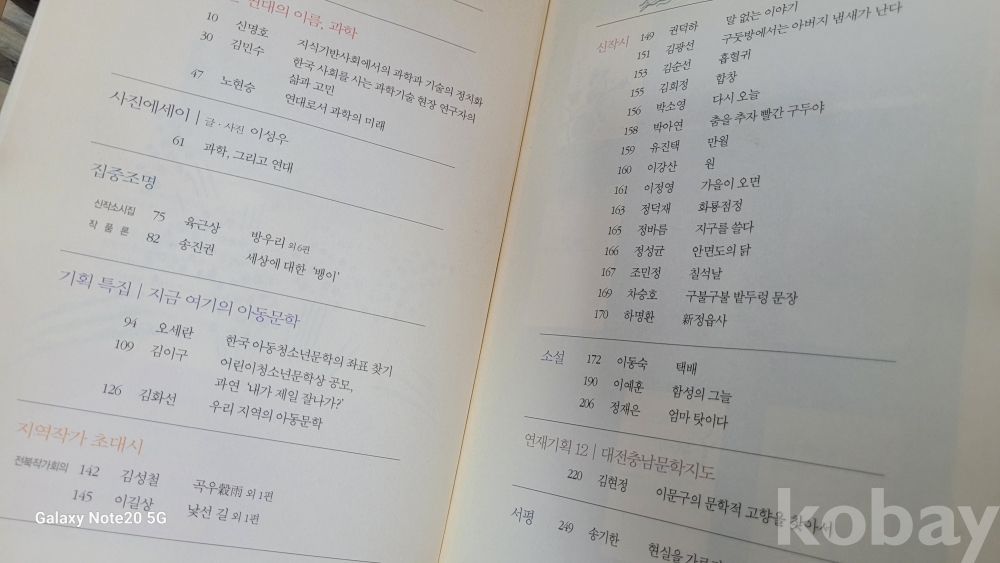 연대의 이름, 과학
10 신명호 지식기반사회에서의 과학과 기술의 정치화
30 김민수 한국 사회를 사는 과학기술 현장 연구자의
삶과 고민
47 노현승 연대로서 과학의 미래
사진에세이 | 글·사진 이성우
61 과학, 그리고 연대
집중조명
신작소시집 75 육근상 방우리 외 6편
작품론 82 송진권 세상에 대한 '뱅이'
기획 특집 | 지금 여기의 아동문학
94 오세란 한국 아동청소년문학의 좌표 찾기
109 김이구 어린이청소년문학상 공모,
과연 '내가 제일 잘나가?'
126 김화선 우리 지역의 아동문학
지역작가 초대시
전북작가회의 142 김성철 곡우穀雨 외 1편
145 이길상 낯선 길 외 1편
Galaxy Note20 5G
신작시 149 권덕하 말 없는 이야기
151 김광선 구둣방에서는 아버지 냄새가 난다
153 김순선 흡혈귀
155 김희정 합창
156 박소영 다시 오늘
158 박아연 춤을 추자 빨간 구두야
159 유진택 만월
160 이강산 원
161 이정영 가을이 오면
163 정덕재 화룡점정
165 정바름 지구를 쓸다
166 정성균 안면도의 닭
167 조민정 칠석날
169 차승호 구불구불 밭두렁 문장
170 하명환 新정읍사
소설 172 이동숙 택배
190 이예훈 함성의 그늘
206 정재은 엄마 탓이다
연재기획 12 | 대전충남문학지도
220 김현정 이문구의 문학적 고향을 찾아서
서평 249 송기한 현실을
kobay